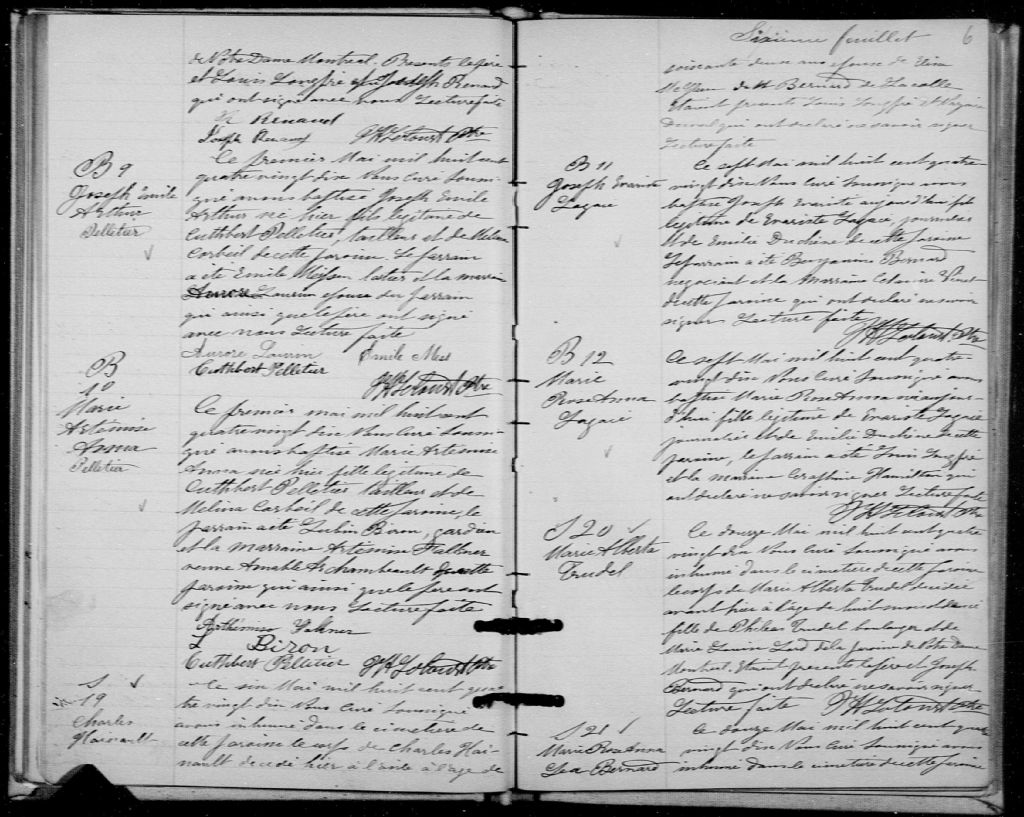 de Notre Dame Montreal. Presents le père
et Louis Longpré et Joseph Renaud
qui ont signé avec nous Lecture faite
N Renaud
Joseph Renaud
B 9
Joseph Emile
Arthur
Pelletier
Ce premier Mai mil huit cent
quatre vingt dix Nous Curé soussi-
gné avons baptisé Joseph Emile
Arthur né hier fils légitime de
Cuthbert Pelletier, tailleur et de Melina
Corbeil de cette paroisse. Le parrain
a été Emile et la marraine
Aurore Laurin epouse du parrain
qui ainsi que le père ont signé
avec nous Lecture faite
Aurore Laurin Emile
Cuthbert Pelletier
B
10
Marie
Artémise
Anna
Pelletier
Ce premier mai mil huit cent
quatre vingt dix Nous Curé soussi-
gné avons baptisé Marie Artémise
Anna née hier fille légitime de
Cuthbert Pelletier tailleur et de
Melina Corbeil de cette paroisse, le
parrain a été Lubin Biron, gardien
et la marraine Artémise Falkner
veuve Amable Archambeault de cette
paroisse qui ainsi que le père ont
signé avec nous Lecture faite
Arthémise
L Biron
Cuthbert Pelletier
S
19
Charles
Hainault
Ce six Mai mil huit cent qua-
tre vingt dix Nous Curé soussigné
avons inhumé dans le cimetière de
cette paroisse le corps de Charles Hai-
nault décédé hier à l'asile à l'age de
Sixième feuillet 6
soixante deux ans epoux de Eliza
de M Bernard de Lacolle
Etaient presents Louis Longpré et
qui ont declaré ne savoir signer
Lecture faite
B 11
Joseph Evariste
Lagacé
Ce sept Mai mil huit cent quatre
vingt dix Nous Curé soussigné avons
baptisé Joseph Evariste né aujourd'hui fils
légitime de Evariste Lagacé, journalier
et de Emilie Duchêne de cette paroisse
Le parrain a été Benjamin Bernard
negociant et la Marraine
de cette paroisse qui ont declaré ne savoir
signer Lecture faite
B 12
Marie
Rose Anna
Lagacé
Ce sept Mai mil huit cent quatre
vingt dix Nous Curé soussigné avons
baptisé Marie Rose Anna née aujour-
d'hui fille légitime de Evariste Lagacé
journalier et de Emilie Duchêne de cette
paroisse, le parrain a été Louis Longpré
et la marraine Seraphine Hamilton qui
ont declaré ne savoir signer Lecture faite
S 20
Marie Alberta
Trudel
Ce douze Mai mil huit cent quatre
vingt dix Nous Curé soussigné avons
inhumé dans le cimetière de cette paroisse
le corps de Marie Alberta Trudel décédée
avant hier à l'age de huit mois et demi
fille de Phileas Trudel boulanger et de
Marie Louise Lord de la paroisse de Notre Dame
Montreal. Etaient presents le père et Joseph
Bernard qui ont declaré ne savoir signer
Lecture faite
S 21
Marie Rose Anna
Lea Bernard
Ce douze Mai mil huit cent quatre
vingt dix Nous Curé soussigné avons
inhumé dans le cimetière de cette paroisse